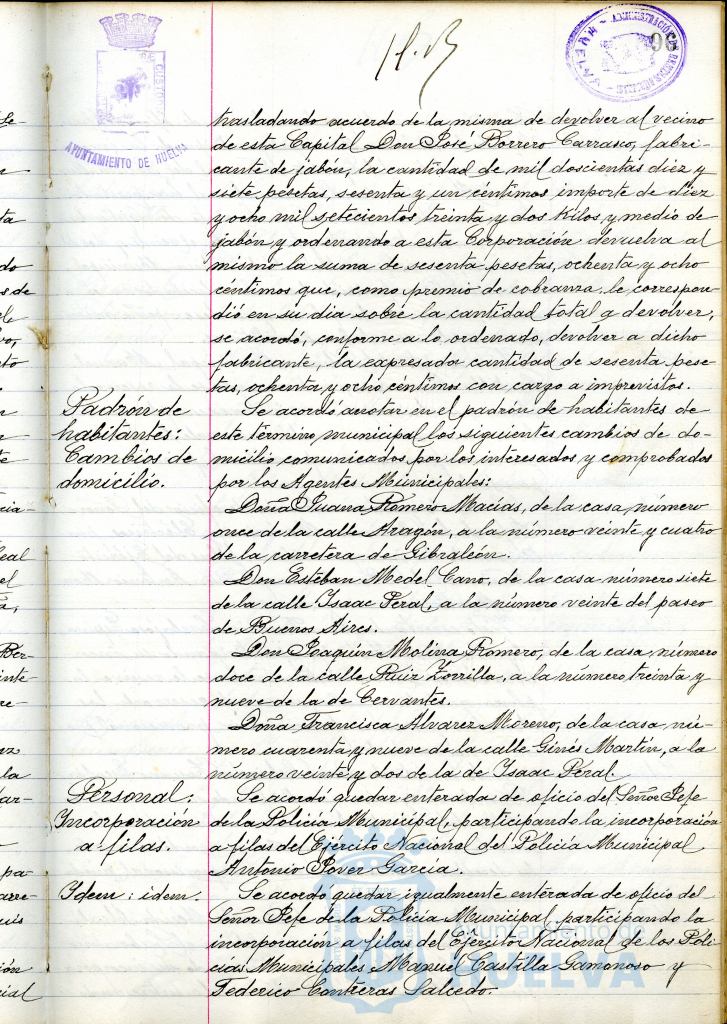 96
AYUNTAMIENTO DE HUELVA
trasladando acuerdo de la misma de devolver al vecino
de esta Capital Don José Borrero Carrasco, fabri-
cante de jabón, la cantidad de mil doscientas diez y
siete pesetas, sesenta y un céntimos importe de diez
y ocho mil setecientos treinta y dos kilos y medio de
jabón y ordenando a esta Corporación devuelva al
mismo la suma de sesenta pesetas, ochenta y ocho
céntimos que, como premio de cobranza le correspon-
dió en su dia sobre la cantidad total a devolver,
se acordó, conforme a lo ordenado, devolver a dicho
fabricante, la expresada cantidad de sesenta pese-
tas, ochenta y ocho céntimos con cargo a imprevistos.
Padrón de
habitantes:
Cambios de
domicilio.
Se acordó anotar en el padrón de habitantes de
este término municipal los siguientes cambios de do-
micilio comunicados por los interesados y comprobados
por los Agentes Municipales:
Doña Juana Romero Macías, de la casa número
once de la calle Aragón, a la número veinte y cuatro
de la carretera de Gibraleón.
Don Esteban Medel Cano, de la casa número siete
de la calle Isaac Peral, a la número veinte del paseo
de Buenos Aires.
Don Joaquin Molina Romero, de la casa número
doce de la calle Ruiz Zorrilla, a la número treinta y
nueve de la de Cervantes.
Doña Francisca Alvarez Moreno, de la casa nú-
mero cuarenta y nueve de la calle Ginés Martín, a la
número veinte y dos de la de Isaac Peral.
Personal:
Incorporación
a filas.
Se acordó quedar enterada de oficio del Señor Jefe
de la Policía Municipal, participando la incorporación
a filas del Ejército Nacional del Policía Municipal
Antonio Jover García.
Idem: idem.
Se acordó quedar igualmente enterada de oficio del
Señor Jefe de la Policía Municipal, participando la
incorporación a filas del Ejército Nacional de los Poli-
cías Municipales Manuel Castilla Gamonoso y
Federico Contreras Salcedo.
Ayuntamiento de
HUELVA